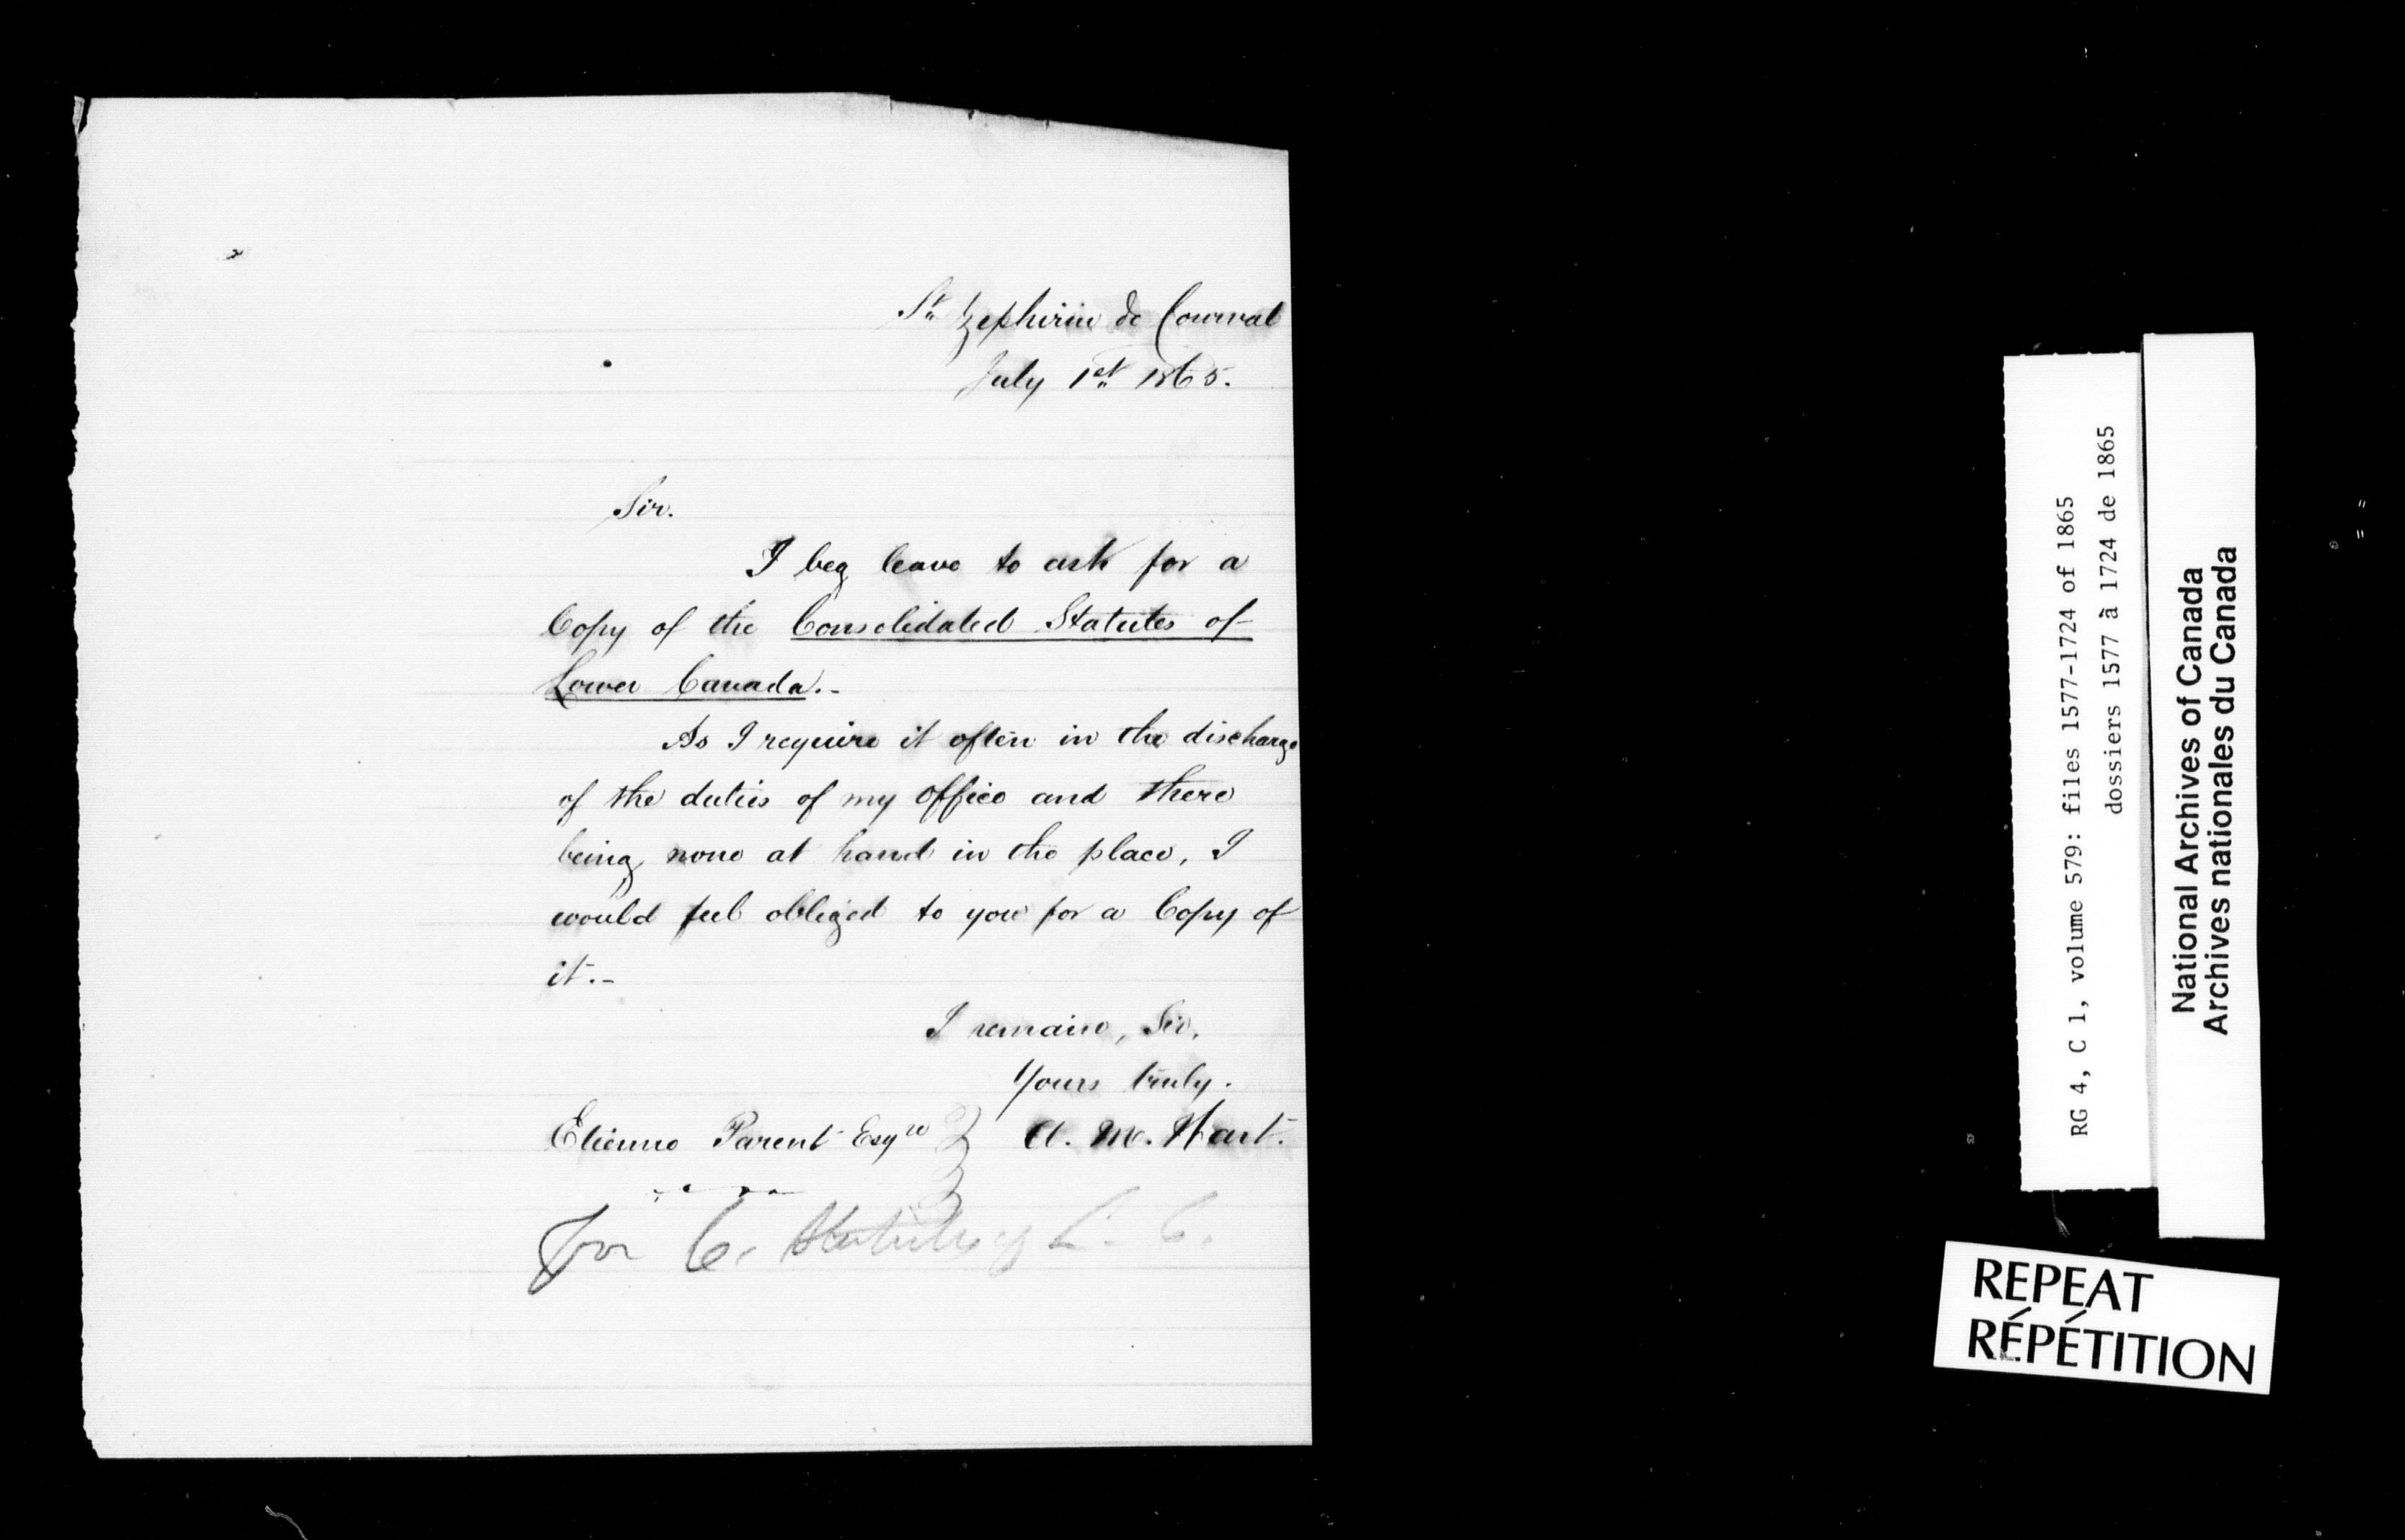 St. Zephirin de Courval
July 1st. 1865.
Sir.
I beg leave to ask for a
Copy of the Consolidated Statutes of
Lower Canada.-
As I require it often in the discharge
of the duties of my Office and there
being none at hand in the place, I
would feel obliged to you for a Copy of
it.-
I remain, Sir,
Yours truly.
Etienne Parent Esqre A. M. Hart.
For C. Statutes of L. C.
RG 4, C 1, volume 579: files 1577-1724 of 1865
dossiers 1577 à 1724 de 1865
National Archives of Canada
Archives nationales du Canada
REPEAT
RÉPÉTITION